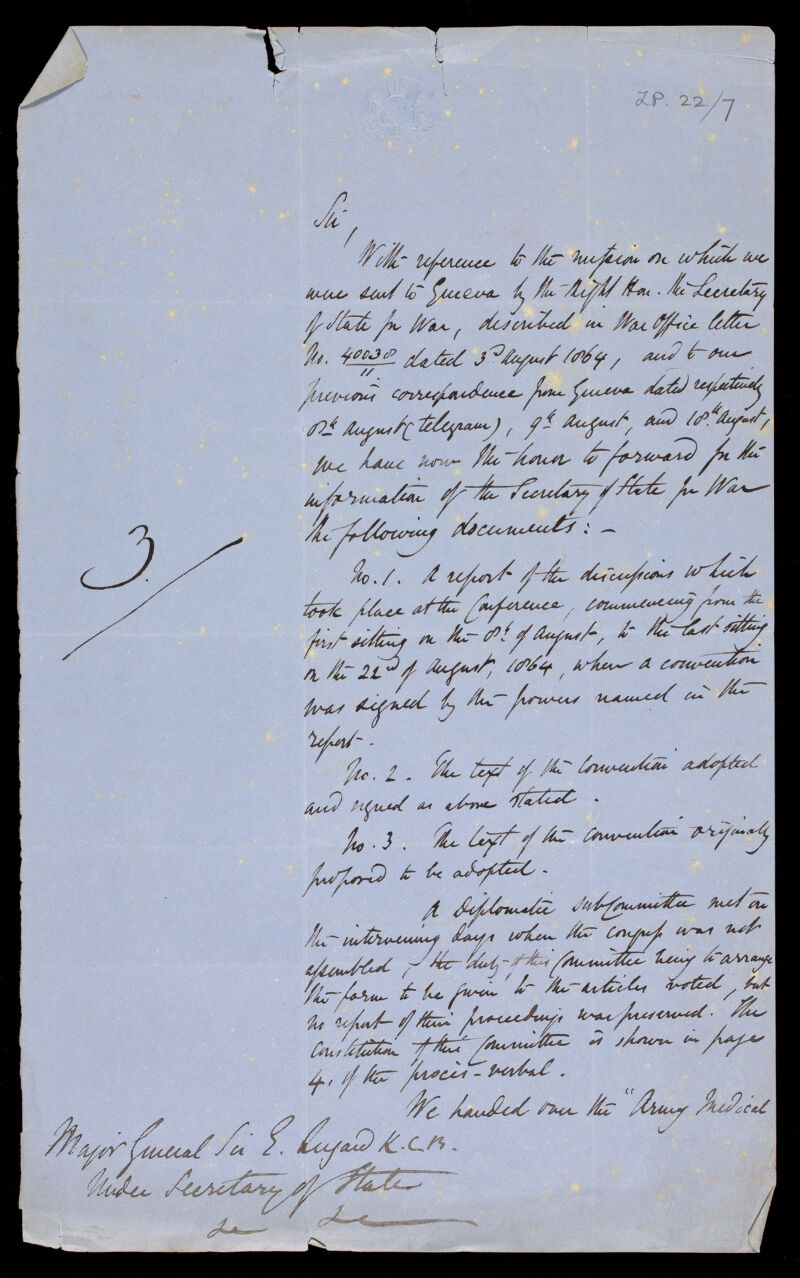 LP. 22/7
Sir,
With reference to the mission on which we
were sent to Geneva by the Right Hon. the Secretary
of State for War, described in War Office letter
No. 40038/11 dated 3rd August 1864, and to our
previous correspondence from Geneva dated respectively
8th August (telegram), 9th August, and 18th August,
we have now the honor to forward for the
information of the Secretary of State for War
the following documents: -
3
No. 1. A report of the discussions which
took place at the Conference, commencing from the
first sitting on the 8th of August, to the last sitting
on the 22nd of August, 1864, when a convention
was signed by the powers named in the
report.
No. 2. The text of the convention adopted
and signed as above stated.
No. 3. The text of the convention originally
proposed to be adopted.
A Diplomatic subCommittee met on
the intervening days when the congress was not
assembled, the duty of this Committee being to arrange
the form to be given to the articles voted, but
no report of their proceedings was preserved. The
constitution of this Committee is shown in page
4, of the procès-verbal.
We handed over the "Army Medical
Major General Sir E. Lugard K.C.B.
Under Secretary of State
&c &c